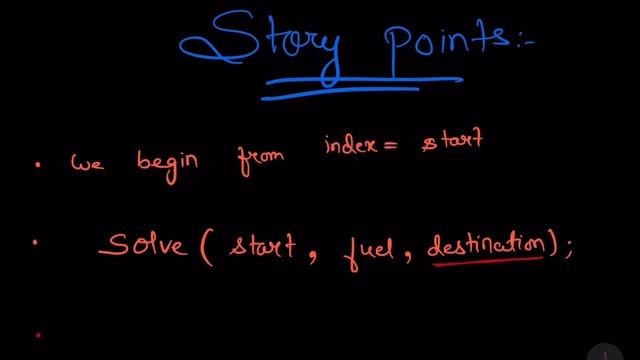 Story points:-
• we begin from index = start
• solve ( start , fuel , destination ) ;
•